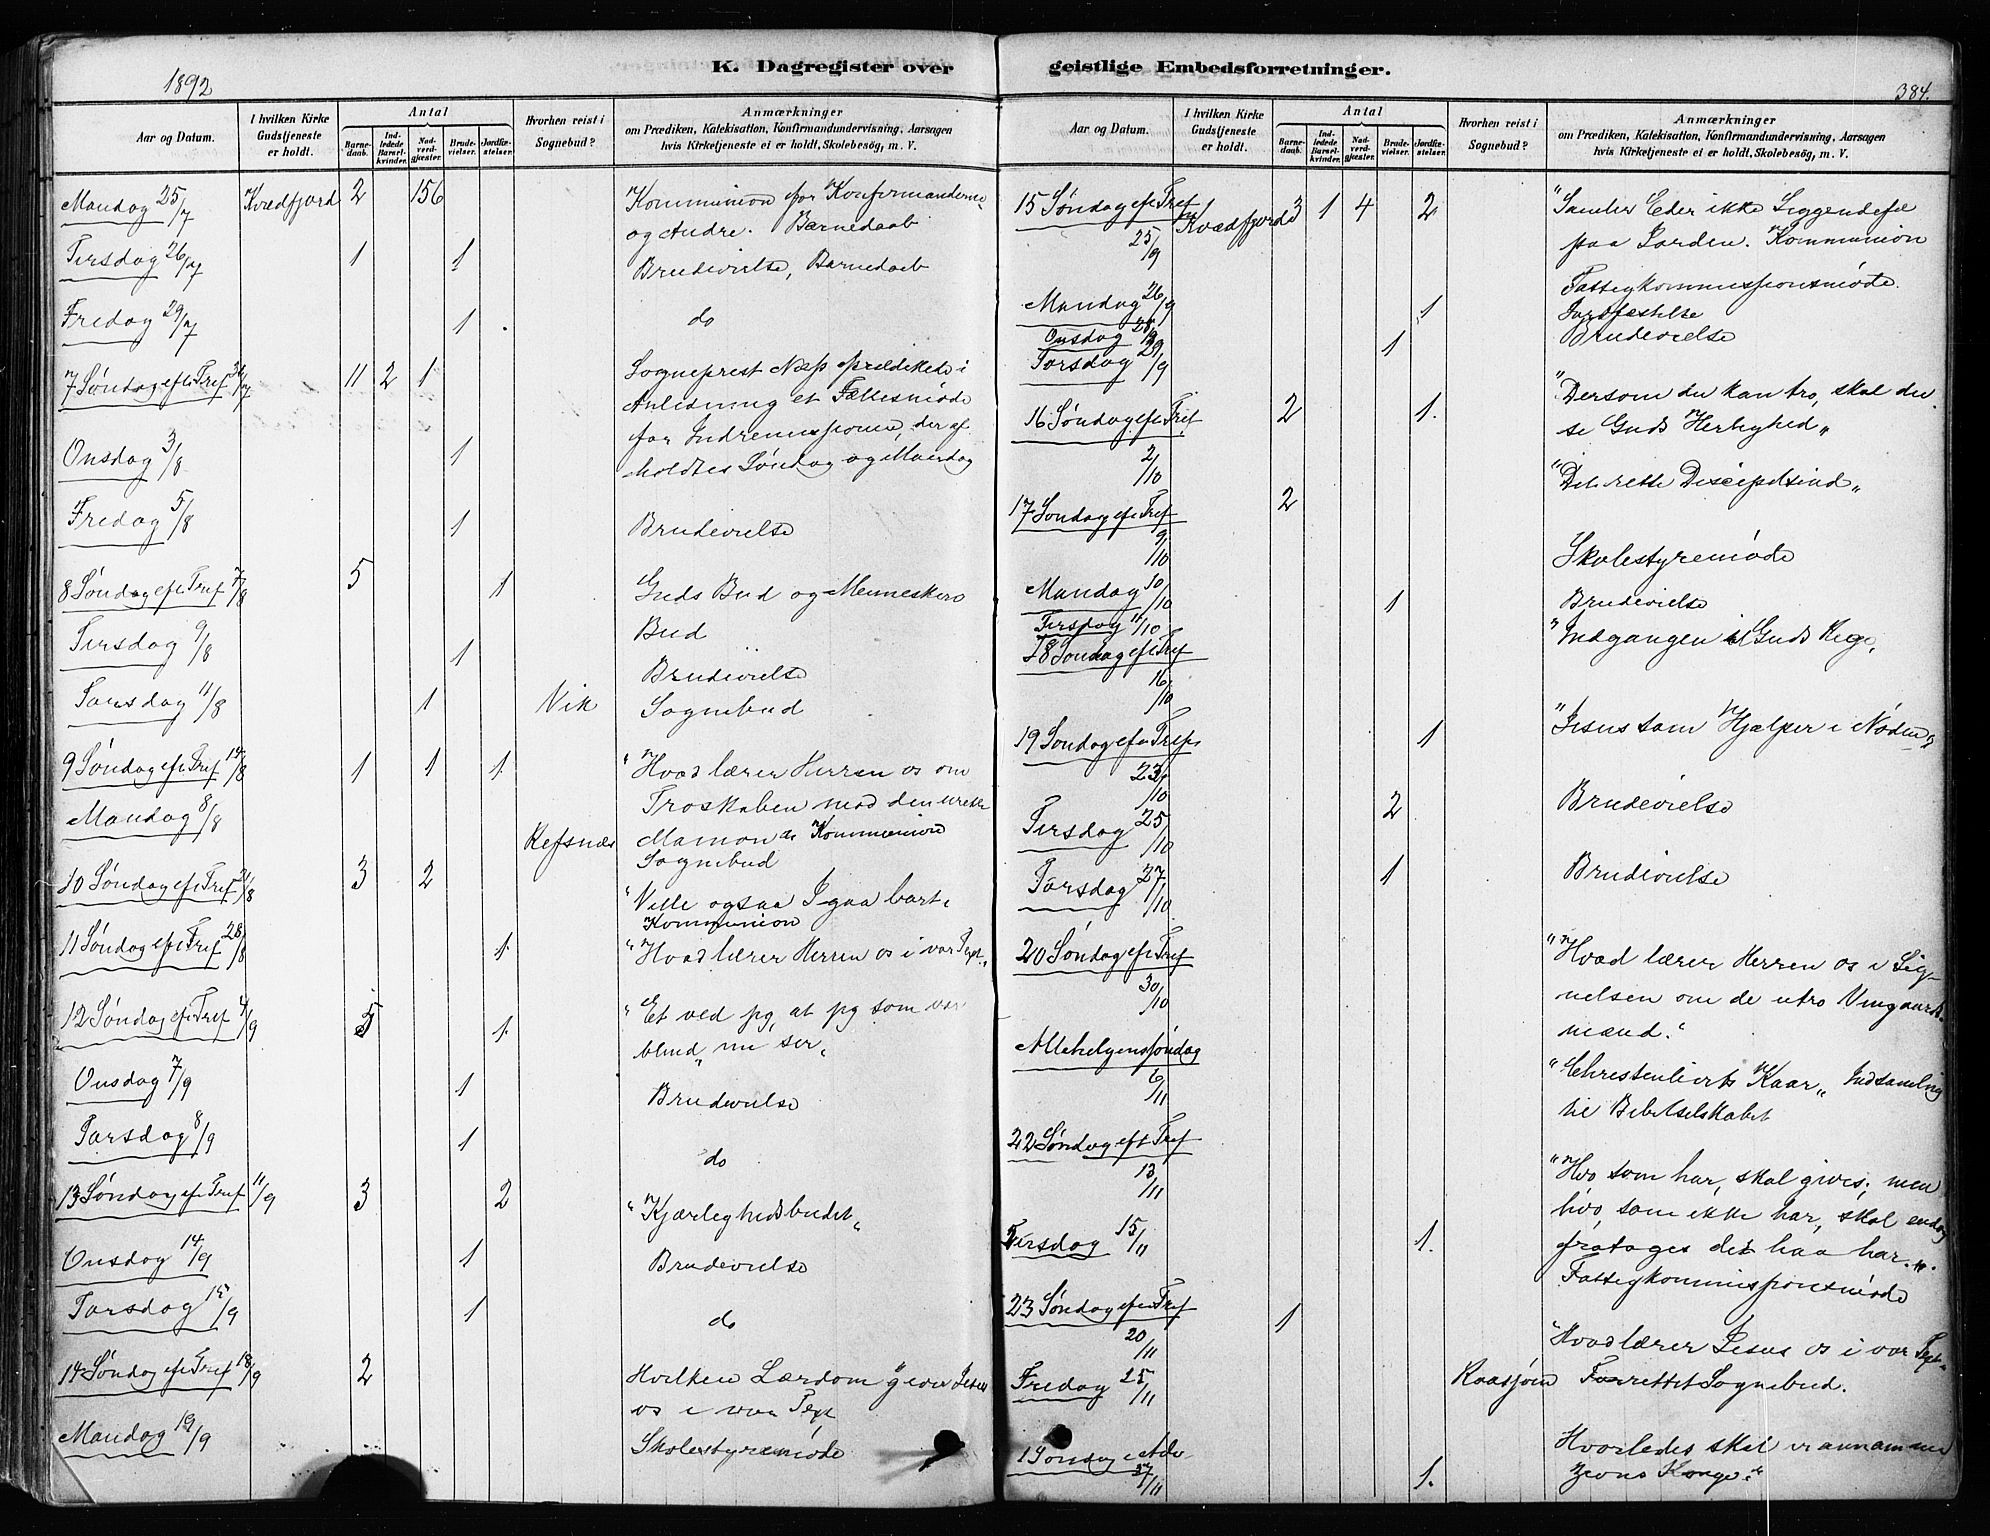 1892
K. Dagregister over
Aar og Datum.
I hvilken Kirke Gudstjeneste er holdt.
Antal
Barnedaab.
Indledede Barselkvinder.
Nadverdgjester.
Brudevielser.
Jordfæstelser.
Hvorhen reist i Sognebud?
Anmærkninger
om Prædiken, Katekisation, Konfirmandundervisning, Aarsagen
hvis Kirketjeneste ei er holdt, Skolebesøg, m. V.
Mandag 25/7 Kvædfjord 2 156 Kommunion for Konfirmanderne
og Andre. Barnedaab
Tirsdag 26/7 1 1 Brudevielse, Barnedaab
Fredag 29/7 1 do
7 Søndag eft Tref 31/7 11 2 1 Sogneprest prædikede i
Anledning et Fællesmøde
for Indremissionen, der af
holdtes Søndag og Mandag
Onsdag 3/8 1
Fredag 5/8 1 Brudevielse
8 Søndag eft Tref 7/8 5 1 Guds Bud og Menneskers
Bud
Tirsdag 9/8 1 Brudevielse
Torsdag 11/8 1 Vik Sognebud
9 Søndag eft Tref 14/8 1 1 1 "Hvad lærer Herren os om
Troskaben mod den urette
Mamon Kommunion
Mandag 8/8 Refsnæs Sognebud
10 Søndag eft Tref 21/8 3 2 "Ville ogsaa I gaa bort
Kommunion
11 Søndag eft Tref 28/8 1 "Hvad lærer Herren os i vor Text"
12 Søndag eft Tref 4/9 5 1 "Et ved jeg, at jeg som var
blind, nu ser"
Onsdag 7/9 1 Brudevielse
Torsdag 8/9 1 do
13 Søndag eft Tref 11/9 3 2 "Kjærlighedsbudet"
Onsdag 14/9 1 Brudevielse
Torsdag 15/9 1 do
14 Søndag eft Tref 18/9 2 Hvilken Lærdom giver Jesus
os i vor Text
Mandag 19/9 Skolestyremøde
geistlige Embedsforretninger.
384.
Aar og Datum.
I hvilken Kirke Gudstjeneste er holdt.
Antal
Barnedaab.
Indledede Barselkvinder.
Nadverdgjester.
Brudevielser.
Jordfæstelser.
Hvorhen reist i Sognebud?
Anmærkninger
om Prædiken, Katekisation, Konfirmandundervisning, Aarsagen
hvis Kirketjeneste ei er holdt, Skolebesøg, m. V.
15 Søndag eft Tref 25/9 Kvædfjord 3 1 4 2 "Samler Eder ikke Liggendefæ
paa Jorden. Kommunion
Fattigkommissionsmøde.
Mandag 26/9 1 Jordfæstelse
Onsdag 28/9 1 Brudevielse
Torsdag 29/9
16 Søndag eft Tref 2/10 2 1. "Dersom du kan tro, skal du
se Guds Herlighed"
17 Søndag eft Tref 9/10 2 "Det rette Discipelsind"
Mandag 10/10 Skolestyremøde
Tirsdag 11/10 1 Brudevielse
18 Søndag eft Tref 16/10 "Indgangen til Guds Rige,
19 Søndag eft Tref 23/10 1 "Jesus som Hjælper i Nøden"
Tirsdag 25/10 2 Brudevielse
Torsdag 27/10 1 Brudevielse
20 Søndag eft Tref 30/10 "Hvad lærer Herren os i Lig-
nelsen om de utro Vingaards-
mænd."
Allehelgenssøndag 6/11 "Christenlivets Kaar" Indsamling
til Bibelselskabet
22 Søndag eft Tref 13/11 "Hvo som har, skal gives; men
hvo, som ikke har, skal endog
fratages det han har."
Tirsdag 15/11 1. Fattigkommissionsmøde
23 Søndag eft Tref 20/11 1 "Hvad lærer Jesus os i vor Text"
Fredag 25/11 Forrettet Sognebud.
1 Søndag i Adv 27/11 1. Hvorledes skal vi annamme
Zions Konge."